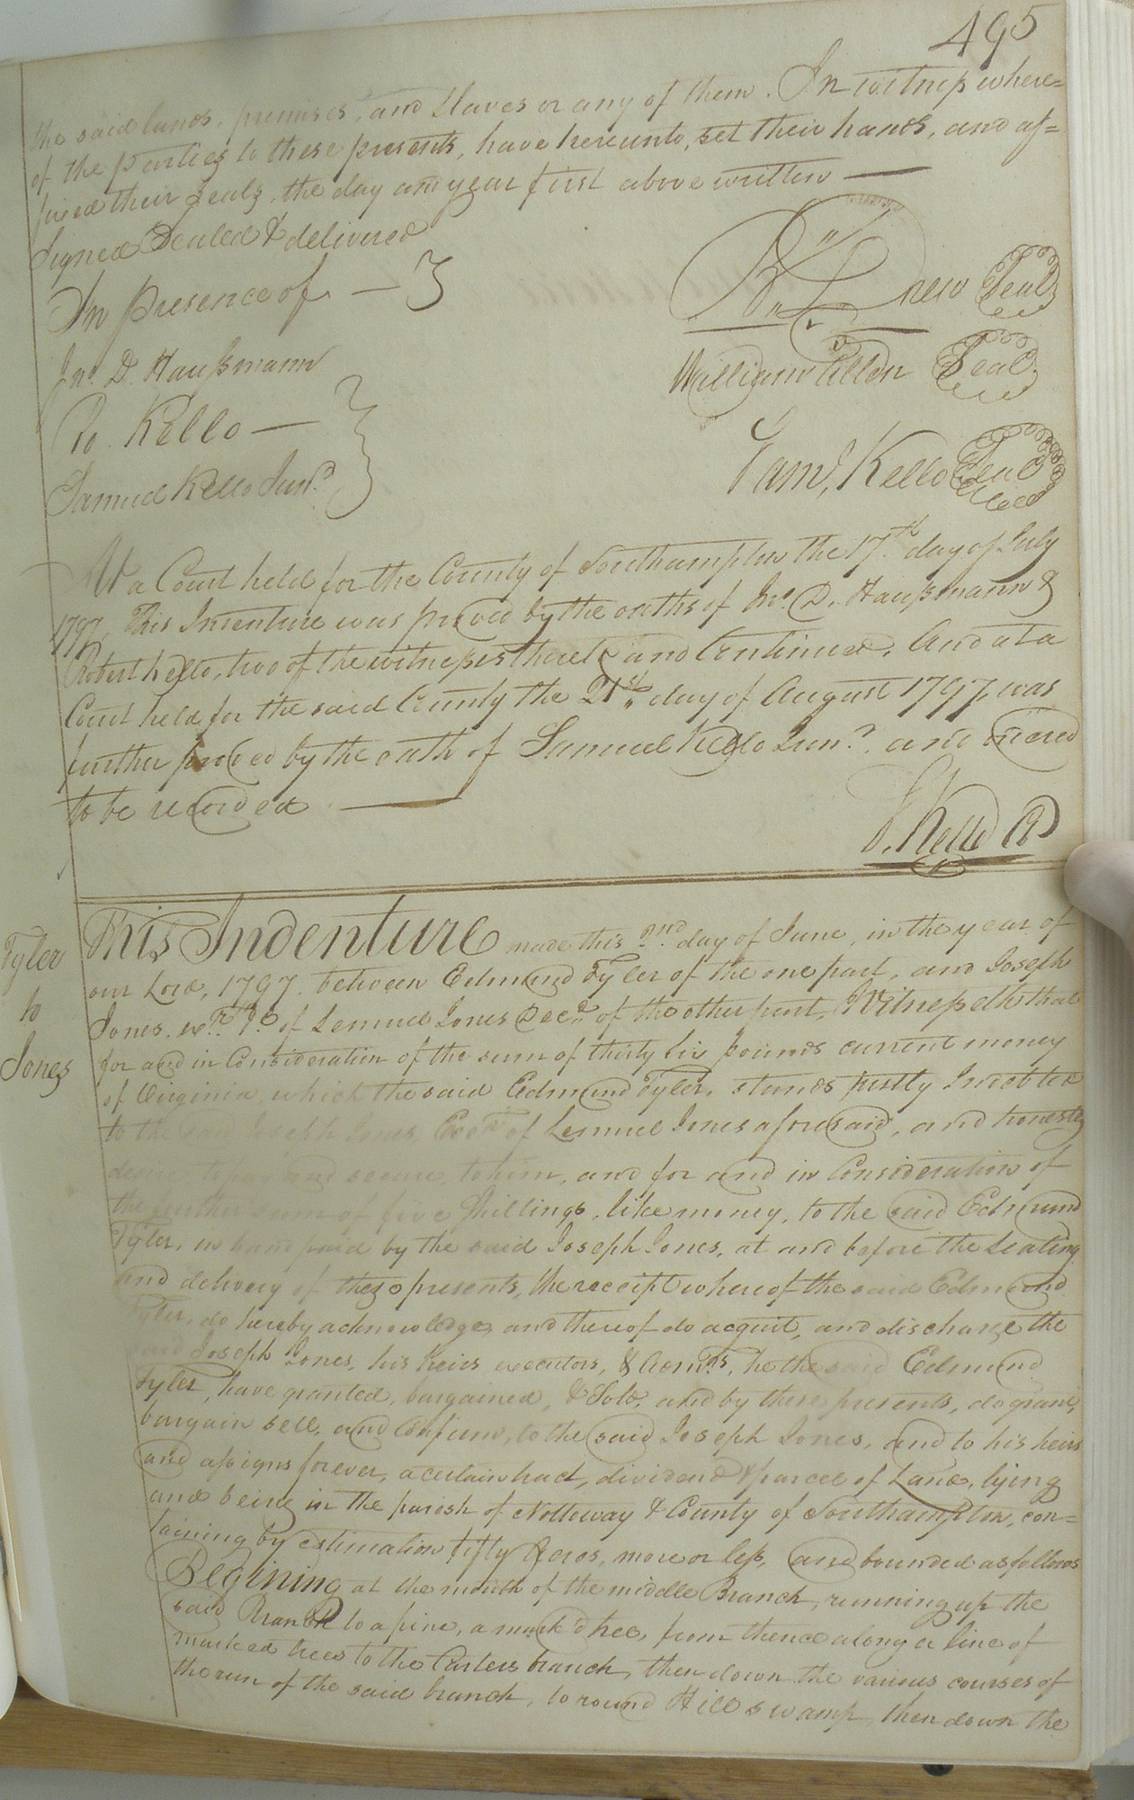 495
the said lands, premises, and slaves or any of them. In witness where=
of the parties to these presents, have hereunto, set their hands, and af=
fixed their seals, the day and year first above written
Signed Sealed & delivered
In presence of
Jno. D. Haußmann
Ro. Kello
Samuel Kello Junr.
Drew Seal
William Allen Seal
Saml. Kello Seal
At a Court held for the County of Southampton the 17th day of July
1797, This Indenture was proved by the oaths of Jno. D. Haußmann &
Robert Kello, two of the witnesses thereto and Continued. And at a
Court held for the said County the 21st day of August 1797 was
further proved by the oath of Samuel Kello Junr. and ordered
to be recorded
S. Kello
Tyler
to
Jones
This Indenture made this 2nd day of June, in the year of
our Lord, 1797. between Edmund Tyler of the one part, and Joseph
Jones. of Lemuel Jones Decd. of the other part, Witnesseth that
for and in Consideration of the sum of thirty six pounds current money
of Virginia, which the said Edmund Tyler, stands justly Indebted
to the said Joseph Jones, Exor. of Lemuel Jones aforesaid, and honestly
and secure, to him, and for and in Consideration of
the further sum of five shillings, like money, to the said Edmund
Tyler, in hand paid by the said Joseph Jones, at and before the sealing
and delivery of these presents, the receipt whereof the said Edmund
Tyler, do hereby acknowledge, and thereof do acquit, and discharge the
said Joseph Jones, his heirs executors, & Admrs, he the said Edmund
Tyler, have granted, bargained, & Sold, and by these presents, do grant,
bargain sell, and Confirm, to the said Joseph Jones, and to his heirs
and assigns forever, a certain tract, dividend & parcel of Land, lying
and being in the parish of Nottoway & County of Southampton, con=
taining by estimation fifty Acres, more or less, and bounded as follows
Begining at the mouth of the middle Branch, running up the
said Branch to a pine, a mark'd tree, from thence along a line of
marked trees to the Carters branch, then down the various courses of
the run of the said branch, to round Hill swamp, then down the